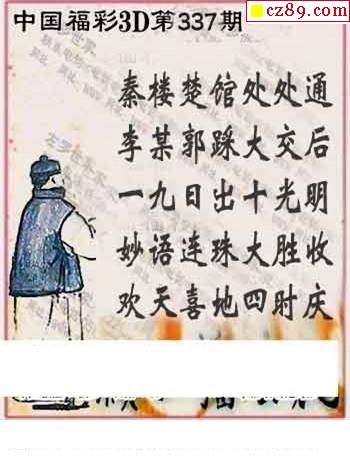 cz89.com
中国福彩3D第337期
秦楼楚馆处处通
李某郭踩大交后
一九日出十光明
妙语连珠大胜收
欢天喜地四时庆